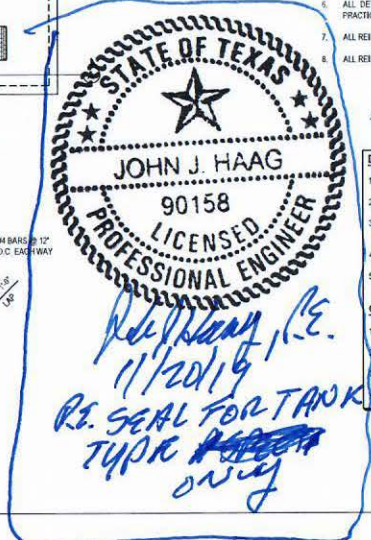 6. ALL DE
PRACTIC
7. ALL REI
8. ALL REI
STATE OF TEXAS
JOHN J. HAAG
90158
LICENSED
PROFESSIONAL ENGINEER
#4 BARS @ 12"
O.C. EACH WAY
LAP
, P.E.
11/20/19
P.E. SEAL FOR TANK
TYPE
ONLY